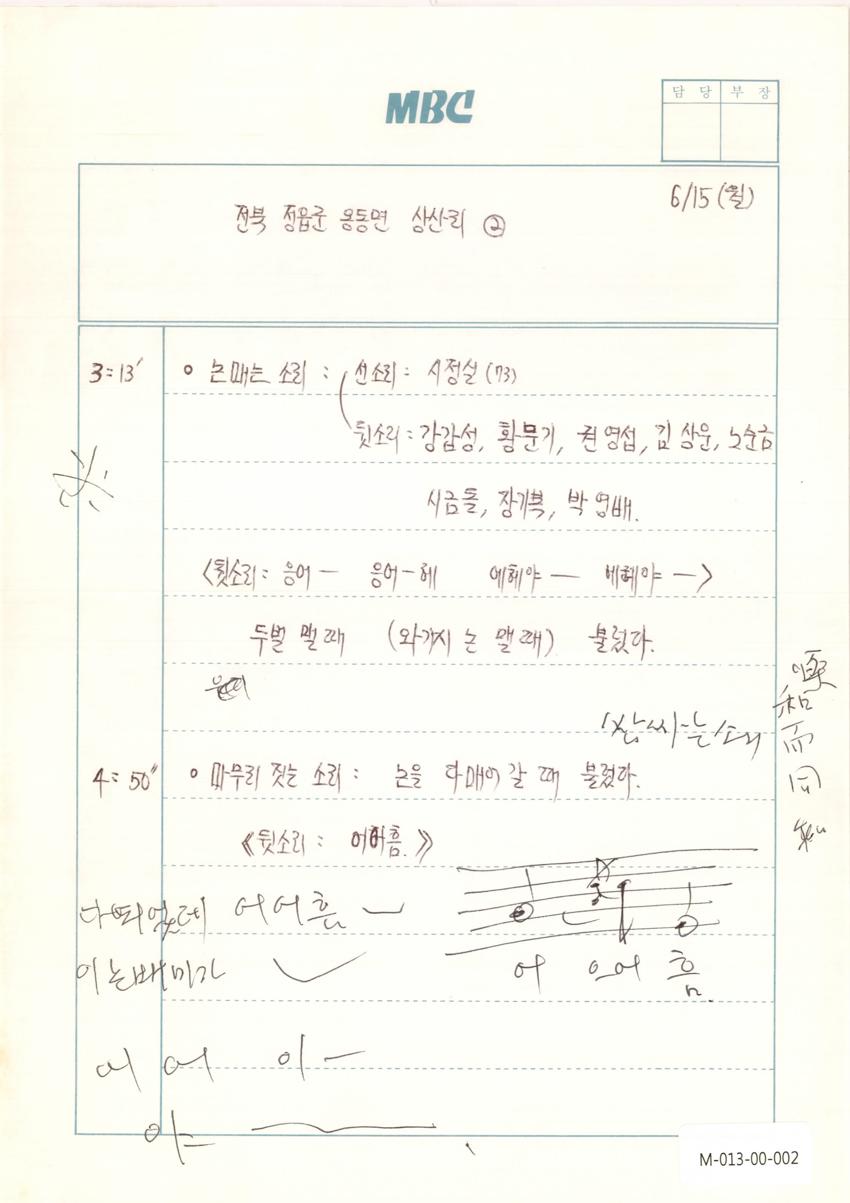 MBC
담 당 부 장
6/15 (월)
전북 정읍군 옹동면 상산리 ②
3=13′ ㅇ 논매는 소리 : 선소리 : 시정실 (73)
뒷소리 : 강갑성, 황문기, 권영섭, 김상운, 노순금
시금돌, 장기복, 박영배.
<뒷소리 : 응어 ― 응어-헤 에헤야 ― 베헤야 ―>
두벌 맬 때 (와가지 논 맬 때) 불렀다.
쌈싸는 소리
4= 50″ ㅇ 마무리 짓는 소리 : 논을 다 매어 갈 때 불렀다.
《뒷소리 : 어허흠.》
다 띠었던데 어어흠
이 논배미가
어 으어 흠
어 어 이 ―
야
M-013-00-002